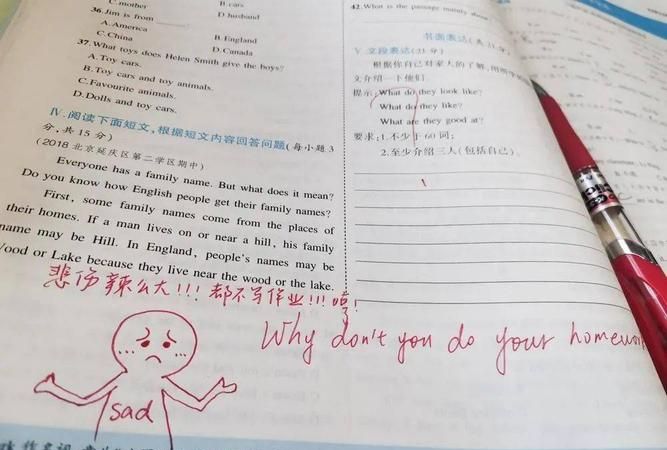 C.mother
B.cars
D.husband
36.Jim is from
A.America
B.England
C.China
D.Canada
37.What toys does Helen Smith give the boys?
A.Toy cars.
B.Toy cars and toy animals.
C.Favourite animals.
D.Dolls and toy cars.
Ⅳ.阅读下面短文,根据短文内容回答问题(每小题3
分,共15分)
(2018北京延庆区第二学区期中)
Everyone has a family name. But what does it mean?
Do you know how English people get their family names?
First, some family names come from the places of
their homes. If a man lives on or near a hill, his family
name may be Hill. In England, people's names may be
Wood or Lake because they live near the wood or the lake.
42.What is the passage mainly about
书面表达(共15分)
Ⅴ.文段表达(15分)
根据你自己对家人的了解,用所学
文介绍一下他们.
提示:What do they look like?
What do they like?
What are they good at?
要求:1.不少于60词;
2.至少介绍三人(包括自己).
悲伤辣么大!!!都不写作业!!!哼!
Why don't you do your homework
sad